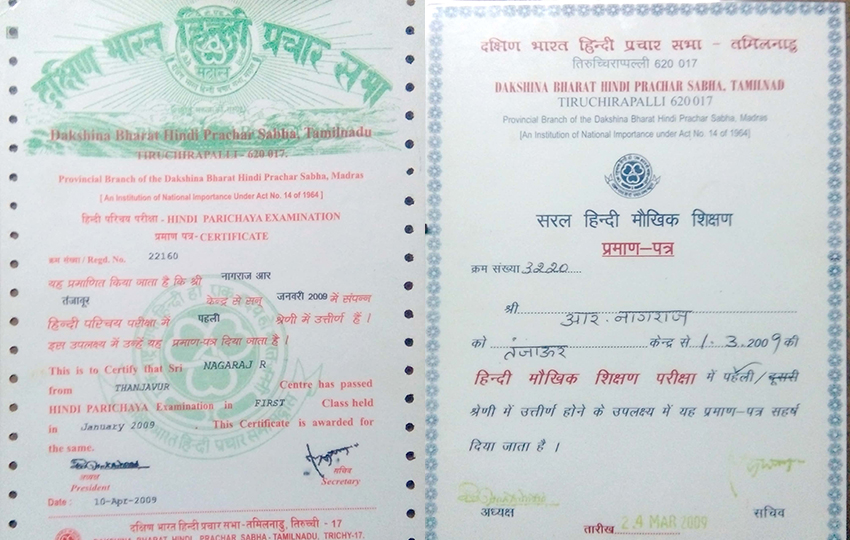 दक्षिण भारत हिन्दी प्रचार सभा
मद्रास
Dakshina Bharat Hindi Prachar Sabha, Tamilnadu
TIRUCHIRAPALLI - 620 017.
Provincial Branch of the Dakshina Bharat Hindi Prachar Sabha, Madras
[ An Institution of National Importance Under Act No. 14 of 1964 ]
हिन्दी परिचय परीक्षा - HINDI PARICHAYA EXAMINATION
प्रमाण पत्र - CERTIFICATE
क्रम संख्या / Regd. No. 22160
यह प्रमाणित किया जाता है कि श्री नागराज आर
तंजावूर केन्द्र से सन् जनवरी 2009 में संपन्न
हिन्दी परिचय परीक्षा में पहली श्रेणी में उत्तीर्ण हैं ।
इस उपलक्ष्य में उन्हें यह प्रमाण-पत्र दिया जाता है ।
This is to Certify that Sri NAGARAJ R
from THANJAVUR Centre has passed
HINDI PARICHAYA Examination in FIRST Class held
in January 2009 . This Certificate is awarded for
the same.
अध्यक्ष सचिव
President Secretary
Date : 10-Apr-2009
दक्षिण भारत हिन्दी प्रचार सभा-तमिलनाडु, तिरुच्ची - 17
DAKSHINA BHARAT HINDI PRACHAR SABHA - TAMILNADU, TRICHY-17.
दक्षिण भारत हिन्दी प्रचार सभा - तमिलनाडु
तिरुच्चिरापल्ली 620 017
DAKSHINA BHARAT HINDI PRACHAR SABHA, TAMILNAD
TIRUCHIRAPALLI 620 017
Provincial Branch of the Dakshina Bharat Hindi Prachar Sabha, Madras
[An Institution of National Importance under Act No. 14 of 1964]
सरल हिन्दी मौखिक शिक्षण
प्रमाण-पत्र
क्रम संख्या 3220
श्री आर. नागराज
को तंजाऊर केन्द्र से 1.3.2009 की
हिन्दी मौखिक शिक्षण परीक्षा में पहली/दूसरी
श्रेणी में उत्तीर्ण होने के उपलक्ष्य में यह प्रमाण-पत्र सहर्ष
दिया जाता है ।
अध्यक्ष सचिव
तारीख 24 MAR 2009